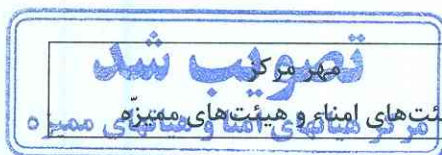 تصویب شد
مهر مرکز
ئت‌های امناء و هیئت‌های ممیزّه
مرکز هیاتهای امنا و هیاتهای ممیزه